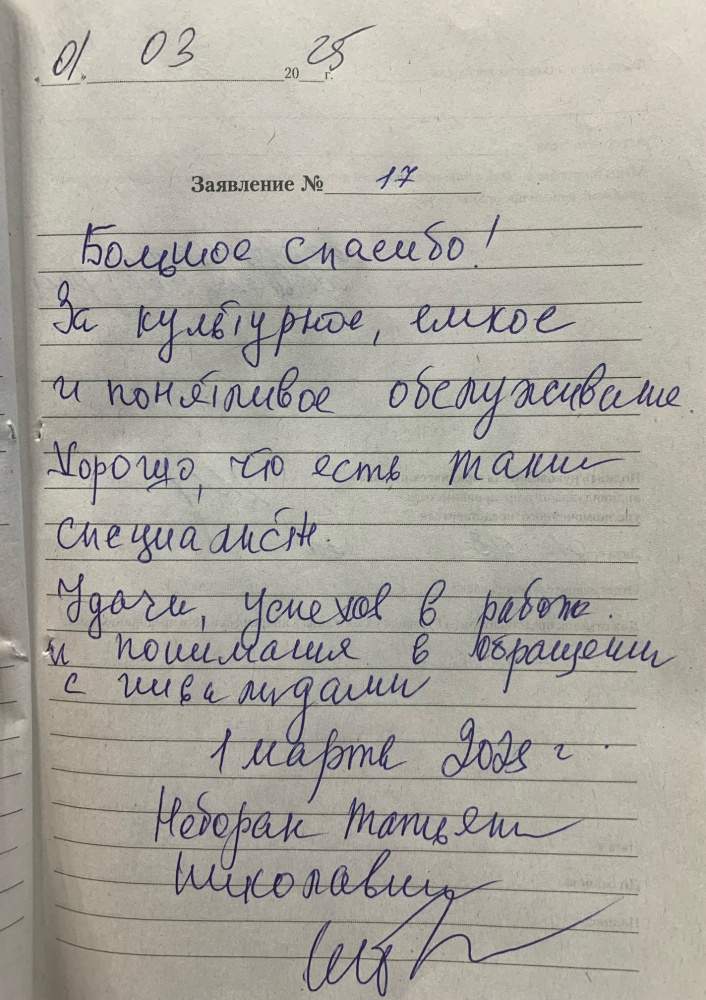 «01» 03 2025 г.
Заявление № 17
Большое спасибо!
За культурное, емкое
и понятливое обслуживание
Хорошо, что есть такие
специалисты.
Удачи, успехов в работе.
и понимания в обращении
с инвалидами
1 марта 2025 г.
Неборак Татьяна
Николавна